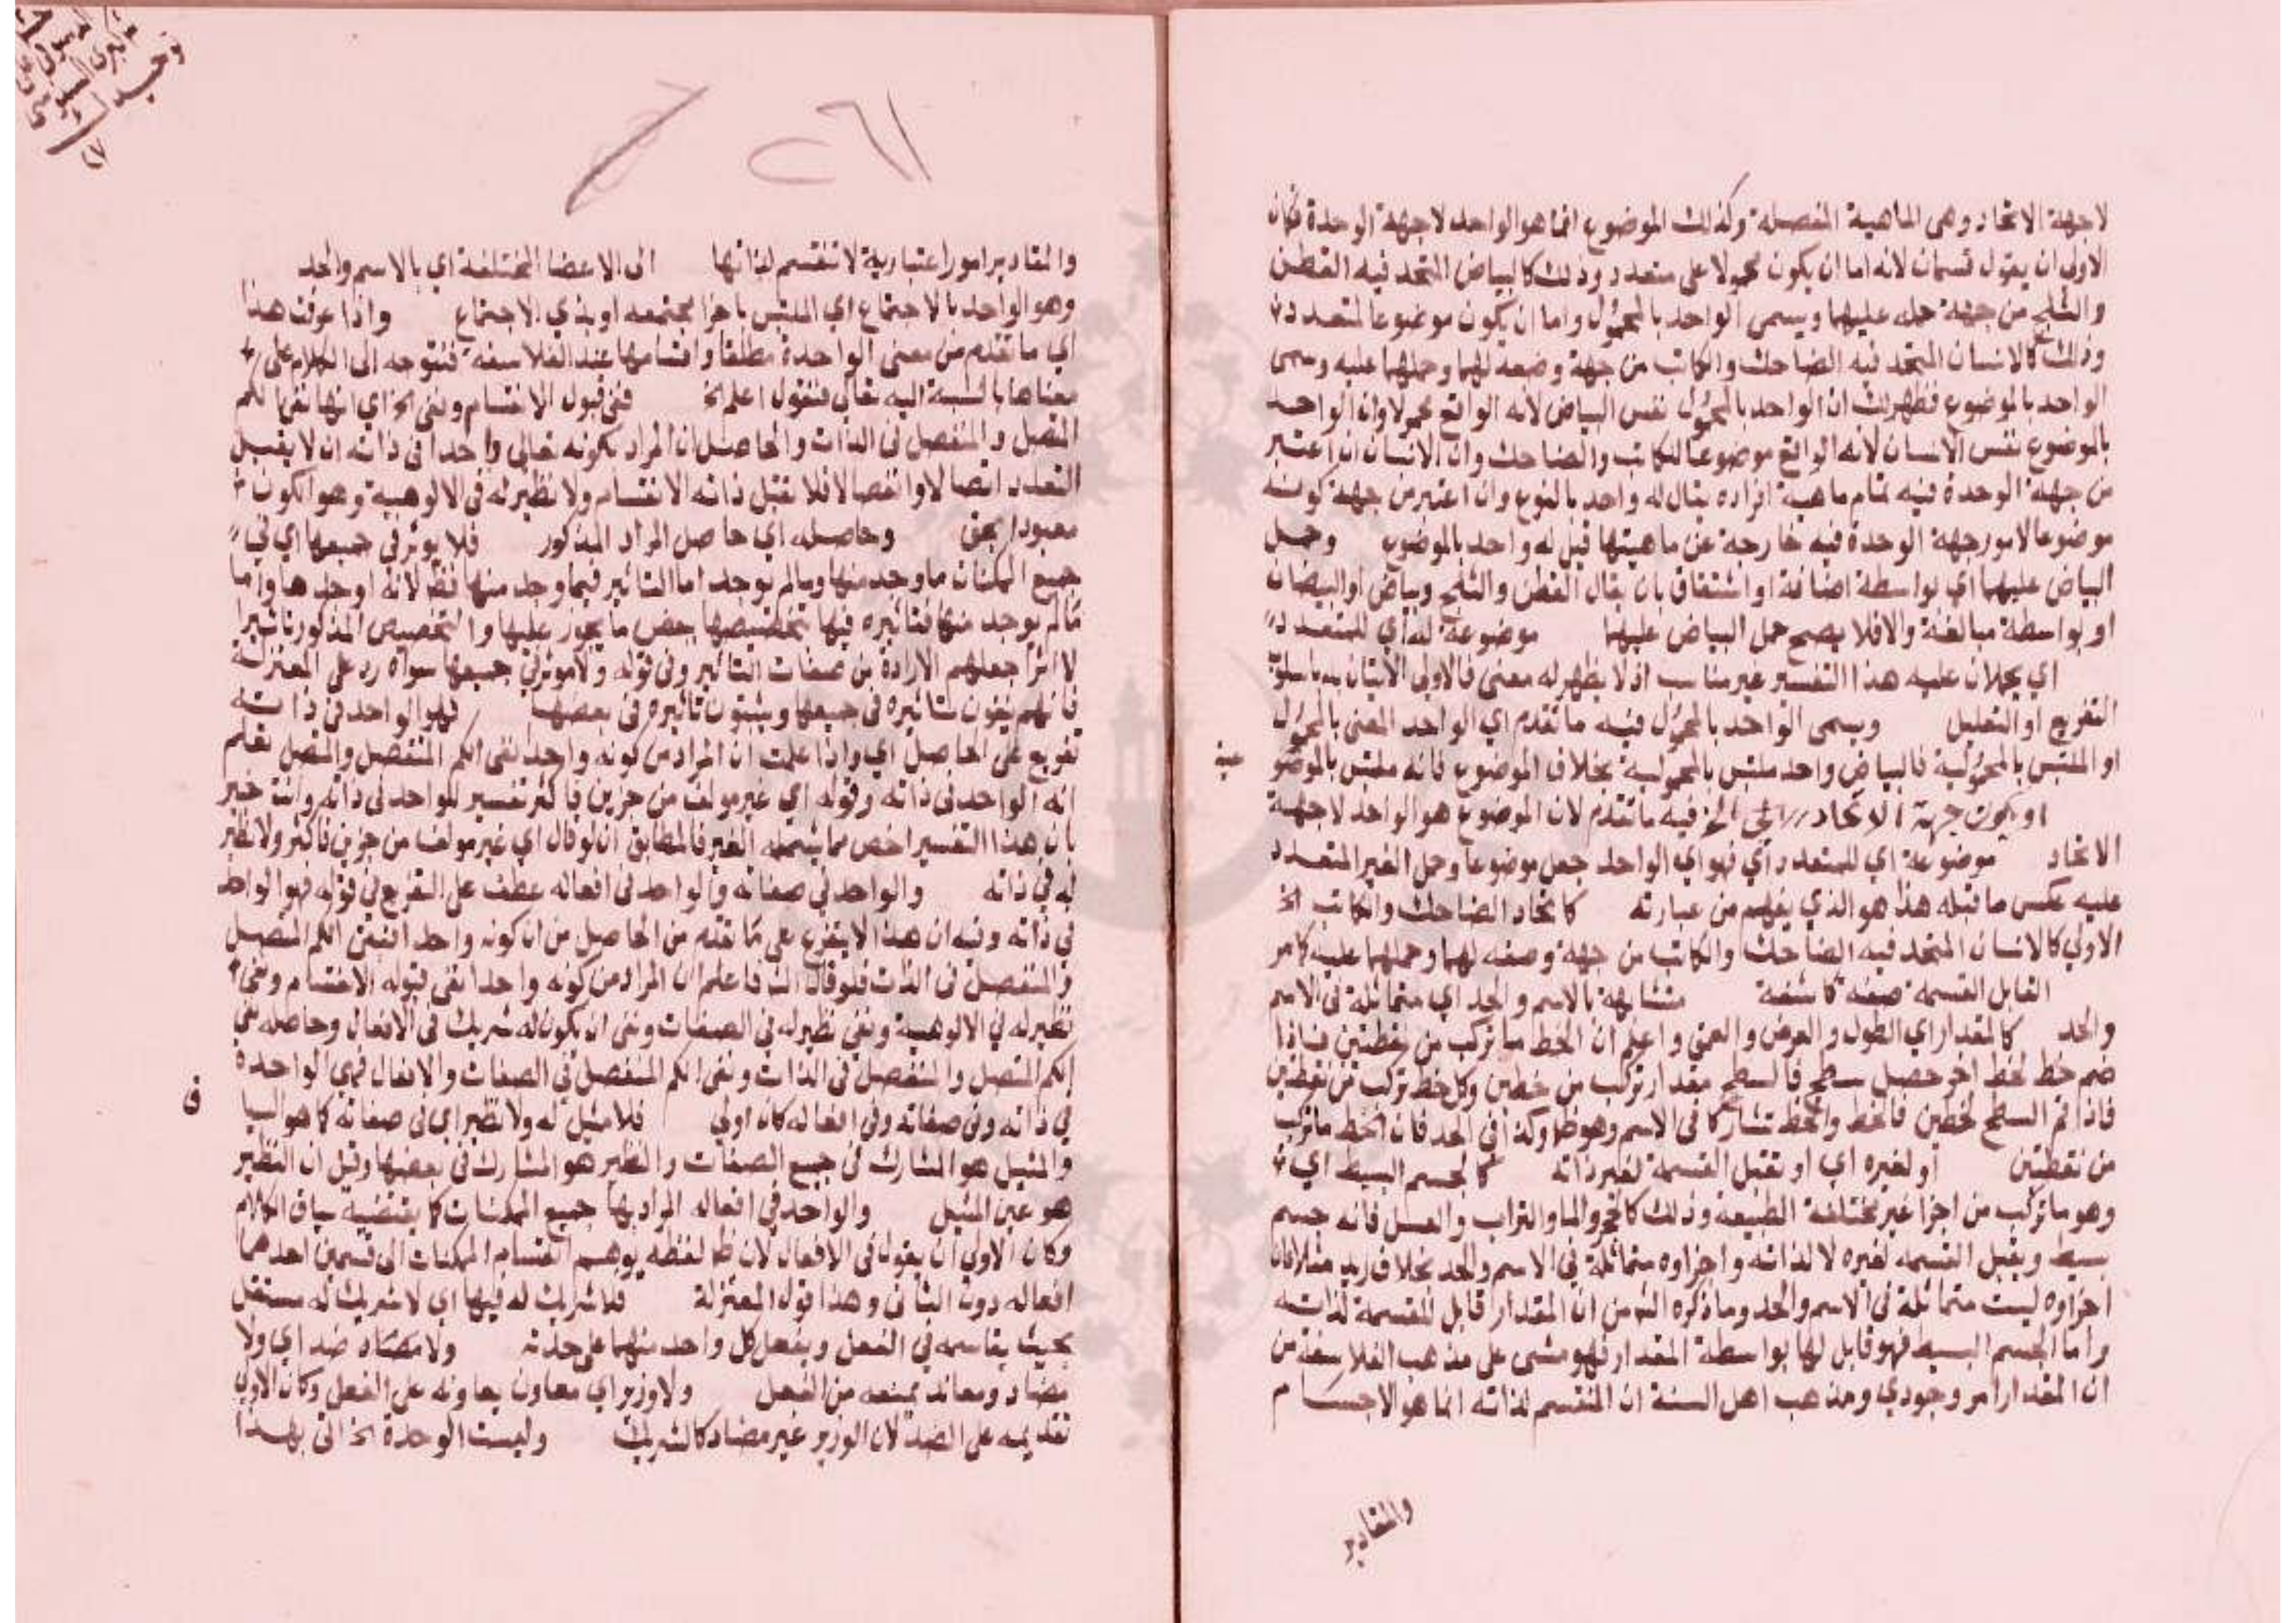 لاجهة الاتحاد وهى الماهية المفصلة وكذلك الموضوع انما هو الواحد لاجهة الوحدة فكان
الاولى ان يقول قسمان لانه اما ان يكون محمولا على متعدد وذلك كالبياض المتحد فيه القطن
والثلج من جهة حمله عليهما ويسمى الواحد بالمحمول واما ان يكون موضوعا لمتعدد
وذلك كالانسان المتحد فيه الضاحك والكاتب من جهة وضعه لهما وحملهما عليه ويسمى
الواحد بالموضوع فظهر لك ان الواحد بالمحمول نفس البياض لانه الواقع محمولا وان الواحد
بالموضوع نفس الانسان لانه الواقع موضوعا للكاتب والضاحك وان الانسان ان اعتبر
من جهة الوحدة فيه تمام ماهية افراده يقال له واحد بالنوع وان اعتبر من جهة كونه
موضوعا لامور جهة الوحدة فيه خارجة عن ماهيتها قيل له واحد بالموضوع وحمل
البياض عليهما اي بواسطة اضافة او اشتقاق بان يقال القطن والثلج وبياض او ابيضان
او بواسطة مبالغة والا فلا يصح حمل البياض عليهما موضوعة له اي للمتعدد
اي يحملان عليه هذا التفسير غير مناسب اذ لا يظهر له معنى فالاولى الاتيان
التفريع او التعليل ويسمى الواحد بالمحمول فيه ما تقدم اي الواحد المعنى بالمحمول
او الملتبس بالمحمولية فالبياض واحد ملتبس بالمحمولية بخلاف الموضوع فانه ملتبس بالموضو
عية
او يكون جهة الاتحاد الخ فيه ما تقدم لان الموضوع هو الواحد لاجهة
الاتحاد موضوعة اي للمتعدد اي فهو اي الواحد جعل موضوعا وحمل الغير المتعدد
عليه عكس ما قبله هذا هو الذي يفهم من عبارته كاتحاد الضاحك والكاتب الخ
الاولى كالانسان المتحد فيه الضاحك والكاتب من جهة وصفه لهما وحملهما عليه كما مر
القابل القسمة صفة كاشفة متشابهة بالاسم والحد اي متماثلة فى الاسم
والحد كالمقدار اي الطول والعرض والعمق واعلم ان الخط ما تركب من نقطتين فاذا
ضم خط لخط اخر حصل سطح فالسطح مقدار تركب من خطين وكل خط تركب من نقطتين
فاذا قسم السطح لخطين فالخط والخط تشاركا فى الاسم وهو ظ وكذا فى الحد فان الخط ما تركب
من نقطتين او لغيره اي او تقبل القسمة لغير ذاته كالجسم البسيط اي
وهو ما تركب من اجزا غير مختلفة الطبيعة وذلك كالخمر والما والتراب والعسل فانه جسم
بسيط ويقبل القسمة لغيره لا لذاته واجزاوه متماثلة فى الاسم والحد بخلاف زيد مثلا فان
اجزاوه ليست متماثلة فى الاسم والحد وما ذكره الش من ان المقدار قابل للقسمة لذاته
واما الجسم البسيط فهو قابل لها بواسطة المقدار فهو مشى على مذهب الفلاسفة من
ان المقدار امر وجودي ومذهب اهل السنة ان المنقسم لذاته انما هو الاجسام
والمقادير
والمقادير امور اعتبارية لا تنقسم لذاتها الى الاعضا المختلفة اي بالاسم والحد
وهو الواحد بالاجتماع اي الملتبس باجزا مجتمعه او بذي الاجتماع واذا عرفت هذا
اي ما تقدم من معنى الواحدة مطلقا واقسامها عند الفلاسفة فنتوجه الى الكلام على
معناها بالنسبة اليه تعالى فنقول اعلم الخ فنفى قبول الانقسام ونفى الخ اي انها نفى الكم
المتصل والمنفصل فى الذات والحاصل ان المراد بكونه تعالى واحدا فى ذاته ان لا يقبل
التعدد اتصالا وانفصالا فلا تقبل ذاته الانقسام ولا نظير له فى الالوهية وهو الكون
معبودا بحق وحاصله اي حاصل المراد المذكور فلا يوثر في جميعها اي في
جميع الممكنات ما وجد منها وما لم يوجد اما التاثير فيما وجد منها فظ لانه اوجدها واما
ما لم يوجد منها فتاثيره فيها بتخصيصها ببعض ما يجوز عليها والتخصيص المذكور تاثيرا
لا اثرا جعلهم الارادة من صفات التاثير وفى قوله ولا موثر فى جميعها سواه رد على المعتزلة
فانهم ينفون تاثيره فى جميعها ويثبتون تاثيره فى بعضها فهو الواحد فى ذاته
تفريع على الحاصل اي واذا علمت ان المراد من كونه واحدا نفى الكم المنفصل والمتصل تعلم
انه الواحد فى ذاته وقوله اي غير مولف من جزين فاكثر تفسير للواحد فى ذاته وانت خبير
بان هذا التفسير اخص مما يشمله الغير فالمطابق ان لو قال اي غير مولف من جزين فاكثر ولا نظير
له في ذاته والواحد فى صفاته والواحد فى افعاله عطف على التفريع فى قوله فهو الواحد
في ذاته وفيه ان هذا لا يتفرع على ما تقدم من الحاصل من ان كونه واحدا نفى الكم المتصل
والمنفصل فى الذات فلو قال الش فاعلم ان المراد من كونه واحدا نفى قبوله الانقسام ونفى
نظير له في الالوهية ونفى نظير له فى الصفات ونفى ان يكون له شريك فى الافعال وحاصله نفى
الكم المتصل والمنفصل فى الذات ونفى الكم المنفصل في الصفات والافعال فهي الواحدة
في ذاته وفى صفاته وفى افعاله كان اولى فلا مثيل له ولا نظير اي فى صفاته كما هو السيا
ق
والمثيل هو المشارك فى جميع الصفات والنظير هو المشارك فى بعضها وقيل ان النظير
هو عين المثيل والواحد في افعاله المراد بها جميع الممكنات كما يقتضيه سياق الكلام
وكان الاولى ان يقول فى الافعال لان ظ لفظه يوهم انقسام الممكنات الى قسمين احدهما
افعاله دون الثانى وهذا قول المعتزلة فلا شريك له فيها اي لا شريك له مستقل
بحيث يقاسمه فى الفعل ويفعل كل واحد منهما على حدته ولا مضاد ضد اي ولا
مضاد ومعاند يمنعه من الفعل ولا وزير اي معاون يعاونه على الفعل وكان الاولى
تقديمه على الضد لان الوزير غير مضاد كالشريك وليست الوحدة الخ اتى بهذا